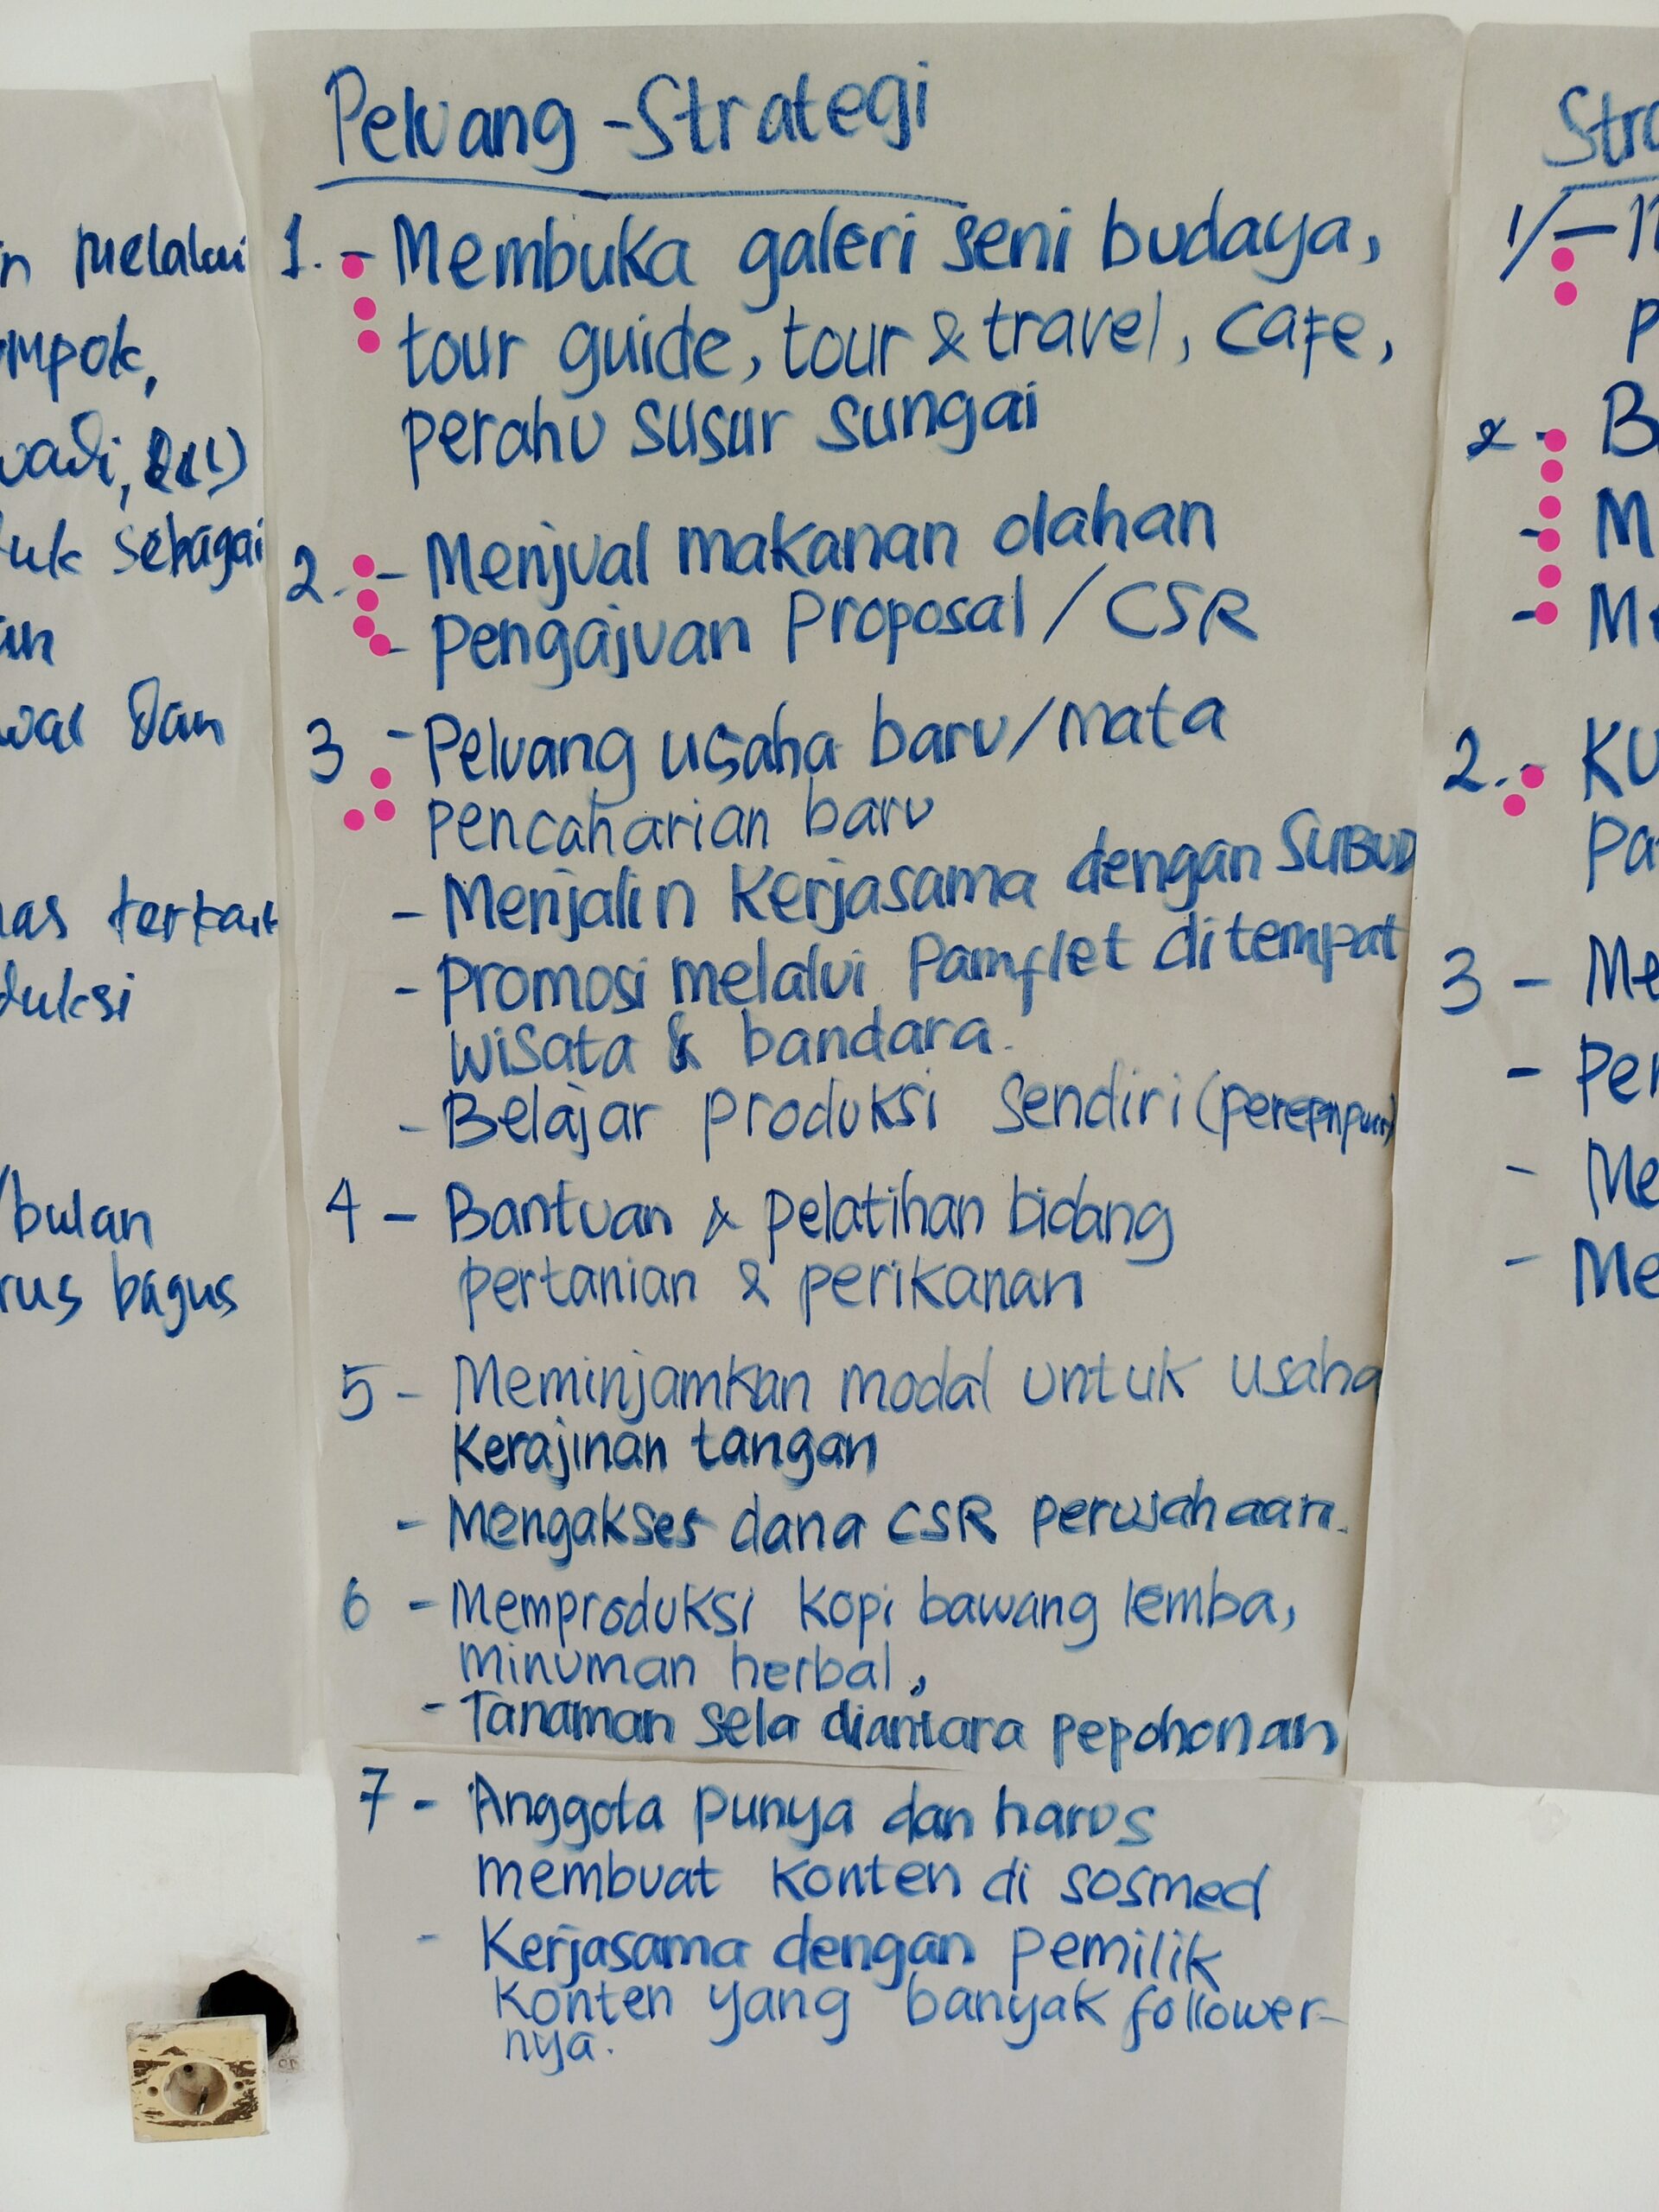 Peluang - Strategi
1. - Membuka galeri seni budaya,
tour guide, tour & travel, cafe,
perahu susur sungai
2. - Menjual makanan olahan
- pengajuan proposal / CSR
3 - Peluang usaha baru/mata
pencaharian baru
- Menjalin kerjasama dengan SUBUD
- promosi melalui Pamflet ditempat
wisata & bandara.
- Belajar produksi sendiri
4 - Bantuan & pelatihan bidang
pertanian & perikanan
5 - Meminjamkan modal untuk usaha
kerajinan tangan
- Mengakses dana CSR perusahaan.
6 - Memproduksi kopi bawang lemba,
minuman herbal,
- Tanaman sela diantara pepohonan
7 - Anggota punya dan harus
membuat konten di sosmed
- Kerjasama dengan pemilik
konten yang banyak follower-
nya.
melalui
sebagai
dan
terkait
/bulan
bagus
2.
3 -